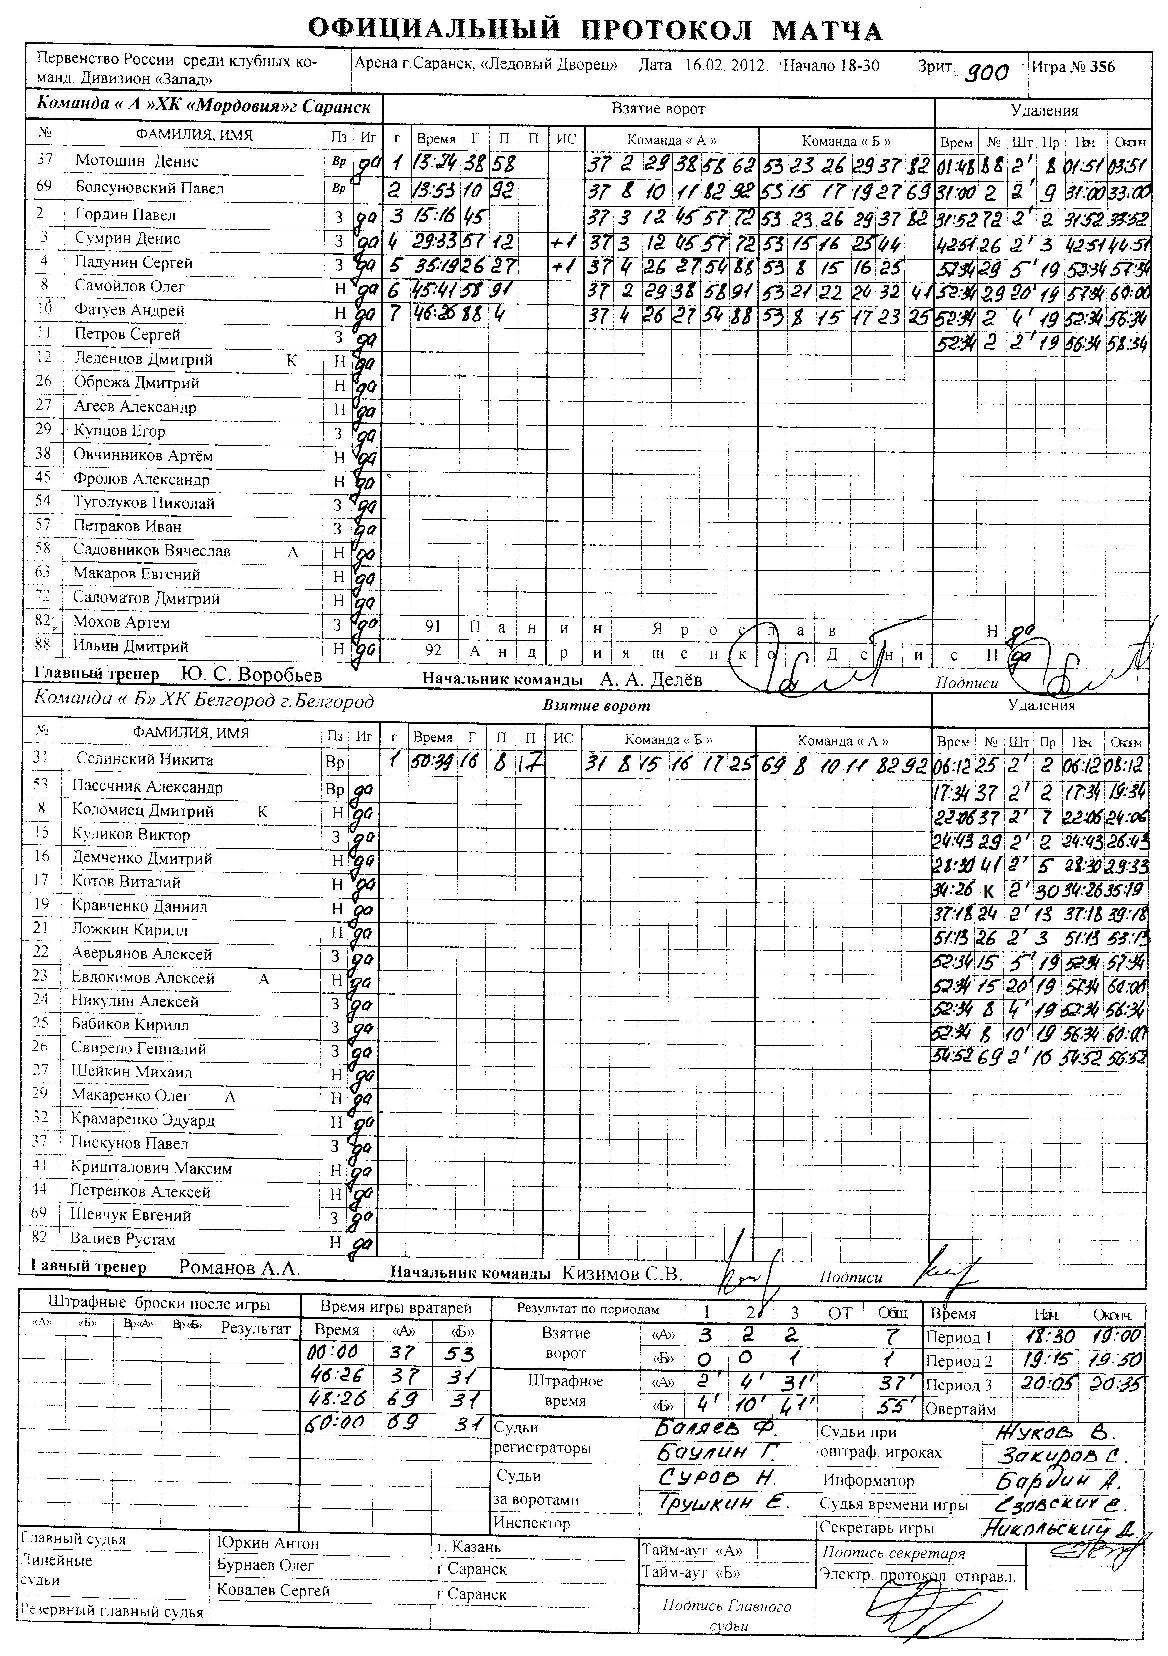 ОФИЦИАЛЬНЫЙ ПРОТОКОЛ МАТЧА
Первенство России среди клубных ко- Арена г.Саранск, «Ледовый Дворец» Дата 16.02. 2012. Начало 18-30 Зрит. 900 Игра № 356
манд. Дивизион «Запад»
Команда « А »ХК «Мордовия»г Саранск Взятие ворот Удаления
№ ФАМИЛИЯ, ИМЯ Пз Иг г Время Г П П ИС Команда « А » Команда « Б » Врем № Шт Пр Нач Окон
37 Мотошин Денис Вр да 1 13:24 38 58 37 2 29 38 58 62 53 23 26 29 37 82 01:48 88 2' 8 01:51 03:51
69 Болсуновский Павел Вр 2 13:53 10 92 37 8 10 11 82 92 53 15 17 19 27 69 31:00 2 2' 9 31:00 33:00
2 Гордин Павел З да 3 15:16 45 37 3 12 45 57 72 53 23 26 29 37 82 31:52 72 2' 2 31:52 33:52
3 Сумрин Денис З да 4 29:33 57 12 +1 37 3 12 45 57 72 53 15 16 25 44 42:51 26 2' 3 42:51 44:51
4 Падунин Сергей З да 5 35:19 26 27 +1 37 4 26 27 54 88 53 8 15 16 25 52:34 29 5' 19 52:34 57:34
8 Самойлов Олег Н да 6 45:41 58 91 37 2 29 38 58 91 53 21 22 24 32 41 52:34 29 20' 19 57:34 60:00
10 Фатуев Андрей Н да 7 46:26 88 4 37 4 26 27 54 88 53 8 15 17 23 25 52:34 2 4' 19 52:34 56:34
11 Петров Сергей З да 52:34 2 2' 19 56:34 58:34
12 Леденцов Дмитрий К Н да
26 Обрежа Дмитрий Н да
27 Агеев Александр Н да
29 Купцов Егор З да
38 Овчинников Артём Н да
45 Фролов Александр Н да
54 Туголуков Николай З да
57 Петраков Иван З да
58 Садовников Вячеслав А Н да
63 Макаров Евгений Н да
72 Саломатов Дмитрий Н да
82 Мохов Артем З да 91 Панин Ярослав Н да
88 Ильин Дмитрий Н да 92 Андрияшенко Денис Н да
Главный тренер Ю. С. Воробьев Начальник команды А. А. Делёв Подписи
Команда « Б» ХК Белгород г.Белгород Взятие ворот Удаления
№ ФАМИЛИЯ, ИМЯ Пз Иг г Время Г П П ИС Команда « Б » Команда « А » Врем № Шт Пр Нач Окон
31 Селинский Никита Вр 1 50:39 16 8 17 31 8 15 16 17 25 69 8 10 11 82 92 06:12 25 2' 2 06:12 08:12
53 Пасечник Александр Вр да 17:34 37 2' 2 17:34 19:34
8 Коломиец Дмитрий К Н да 22:06 37 2' 7 22:06 24:06
15 Куликов Виктор З да 24:43 29 2' 2 24:43 26:43
16 Демченко Дмитрий Н да 28:30 41 2' 5 28:30 29:33
17 Котов Виталий Н да 34:26 К 2' 30 34:26 35:19
19 Кравченко Даниил Н да 37:18 24 2' 13 37:18 39:18
21 Ложкин Кирилл Н да 51:13 26 2' 3 51:13 53:13
22 Аверьянов Алексей З да 52:34 15 5' 19 52:34 57:34
23 Евдокимов Алексей А Н да 52:34 15 20' 19 57:34 60:00
24 Никулин Алексей З да 52:34 8 4' 19 52:34 56:34
25 Бабиков Кирилл З да 52:34 8 10' 19 56:34 60:00
26 Свирепо Геннадий З да 54:52 69 2' 16 54:52 56:52
27 Шейкин Михаил Н да
29 Макаренко Олег А Н да
32 Крамаренко Эдуард Н да
37 Пискунов Павел З да
41 Кришталович Максим Н да
44 Петренков Алексей Н да
69 Шевчук Евгений З да
82 Валиев Рустам Н да
Главный тренер Романов А.А. Начальник команды Кизимов С.В. Подписи
Штрафные броски после игры Время игры вратарей Результат по периодам 1 2 3 ОТ Общ Время Нач. Оконч.
«А» «Б» Вр«А» Вр«Б» Результат Время «А» «Б» Взятие ворот «А» 3 2 2 7 Период 1 18:30 19:00
00:00 37 53 «Б» 0 0 1 1 Период 2 19:15 19:50
46:26 37 31 Штрафное время «А» 2' 4' 31' 37' Период 3 20:05 20:35
48:26 69 31 «Б» 4' 10' 41' 55' Овертайм
60:00 69 31 Судьи регистраторы Баляев Ф. Судьи при Жуков В.
Баулин Г. оштраф. игроках Закиров С.
Судьи за воротами Суров Н. Информатор Бардин А.
Трушкин Е. Судья времени игры
Инспектор Секретарь игры Никольский Д.
Главный судья Юркин Антон г. Казань Тайм-аут «А» Подпись секретаря
Линейные судьи Бурнаев Олег г Саранск Тайм-аут «Б» Электр. протокол отправл.
Ковалев Сергей г Саранск Подпись Главного судьи
Резервный главный судья